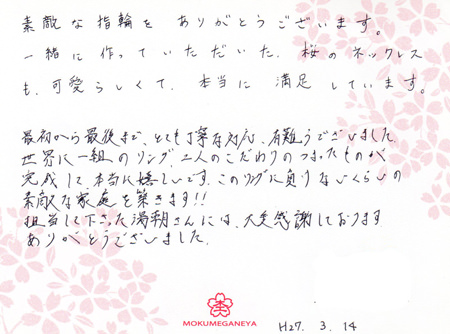 素敵な指輪を ありがとうございます。
一緒に 作っていただいた、桜のネックレス
も、可愛らしくて、本当に 満足 しています。
最初から最後まで、とても丁寧な対応、有難うございました。
世界に一組のリング、二人のこだわりのつまったものが
完成して、本当に嬉しいです。このリングに負けないくらいの
素敵な家庭を築きます!!
担当して下さった 湯朝さんには、大変感謝しております
ありがとうございました。
MOKUMEGANEYA
H27. 3. 14